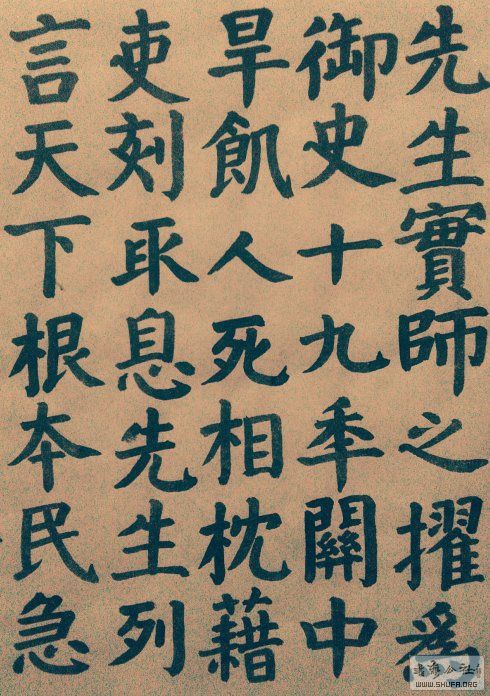 先生實師之擢爲
御史十九年關中
旱飢人死相枕藉
吏刻取息先生列
言天下根本民急
WWW.SHUFA.ORG